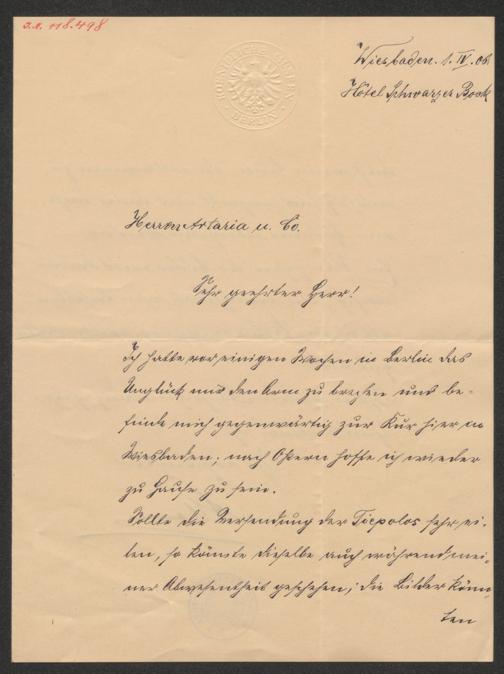 I.N. 118.498
Wiesbaden. 1. IV. 06.
Hôtel Schwarzer Bock
BERLIN
Herren Artaria u. Co.
Sehr geehrter Herr!
Ich hatte vor einigen Wochen in Berlin das
Unglück mir den Arm zu brechen und be-
finde mich gegenwärtig zur Kur hier in
Wiesbaden; nach Ostern hoffe ich wieder
zu Hause zu sein.
Sollte die Versendung der Tiepolos sehr ei-
len, so könnte dieselbe auch während mei-
ner Abwesenheit geschehen; die Bilder könn-
ten